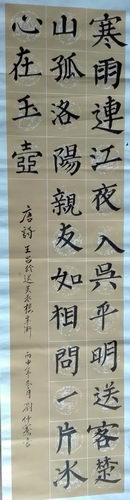 寒雨連江夜入吳平明送客楚
山孤洛陽親友如相問一片冰
心在玉壺
唐詩 王昌齡送